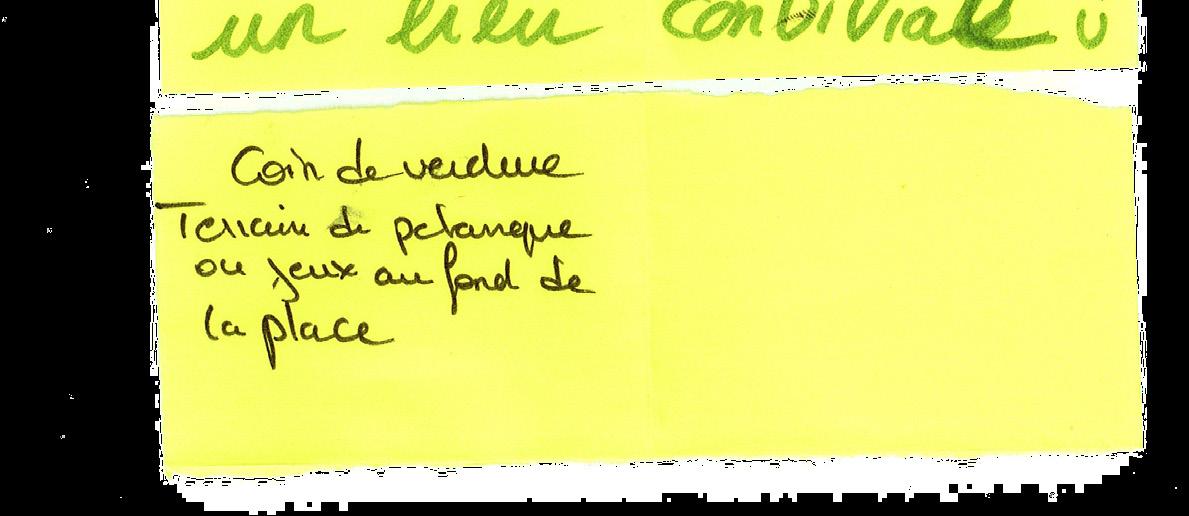 un lieu conviviale ü
Coin de verdure
Terrain de petanque
ou jeux au fond de
la place